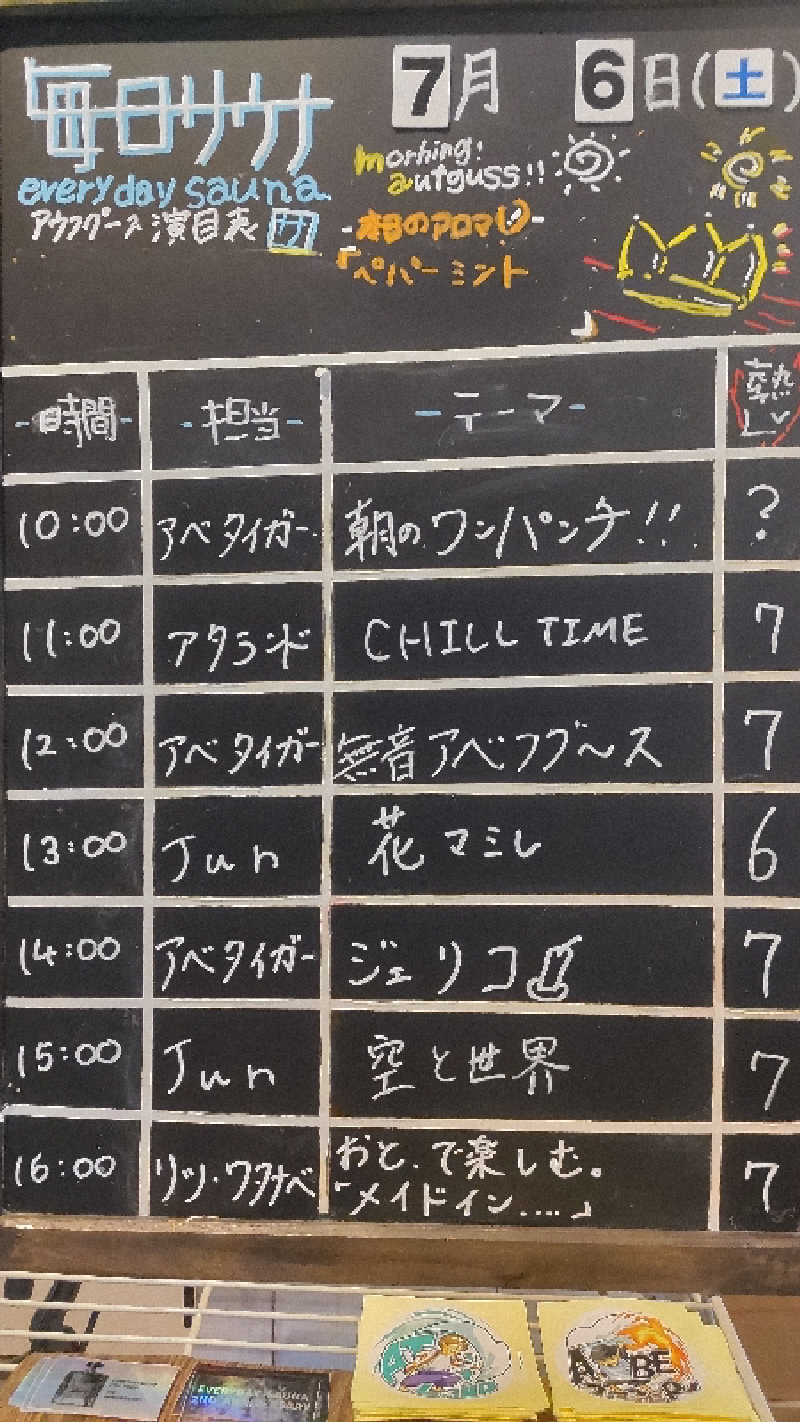 毎日サウナ
7月 6日(土)
everyday sauna
morning!
autguss!!
アウフグース 演目表 サ
-本日のアロマ-
「ペパーミント
」
-時間- -担当- -テーマ- 熱レベ
10:00 アベタイガー 朝のワンパンチ!! ?
11:00 アクランド CHILL TIME 7
12:00 アベタイガー 無音アベフグ〜ス 7
13:00 Jun 花マミレ 6
14:00 アベタイガー ジェリコ 7
15:00 Jun 空と世界 7
16:00 リッツ・ワタナベ おと、で楽しむ。 7
「メイドイン....」
EVERYDAY SAUNA
2ND ANNIVERSARY